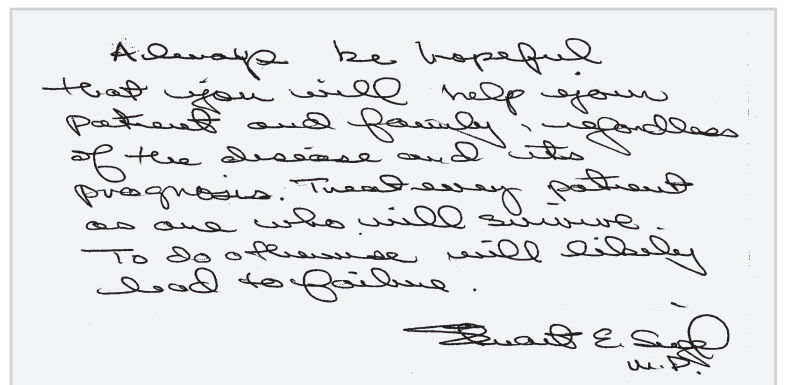 Always be hopeful
that you will help your
patient and family, regardless
of the disease and its
prognosis. Treat every patient
as one who will survive.
To do otherwise will likely
lead to failure.
Stuart E. Siegel
M.D.